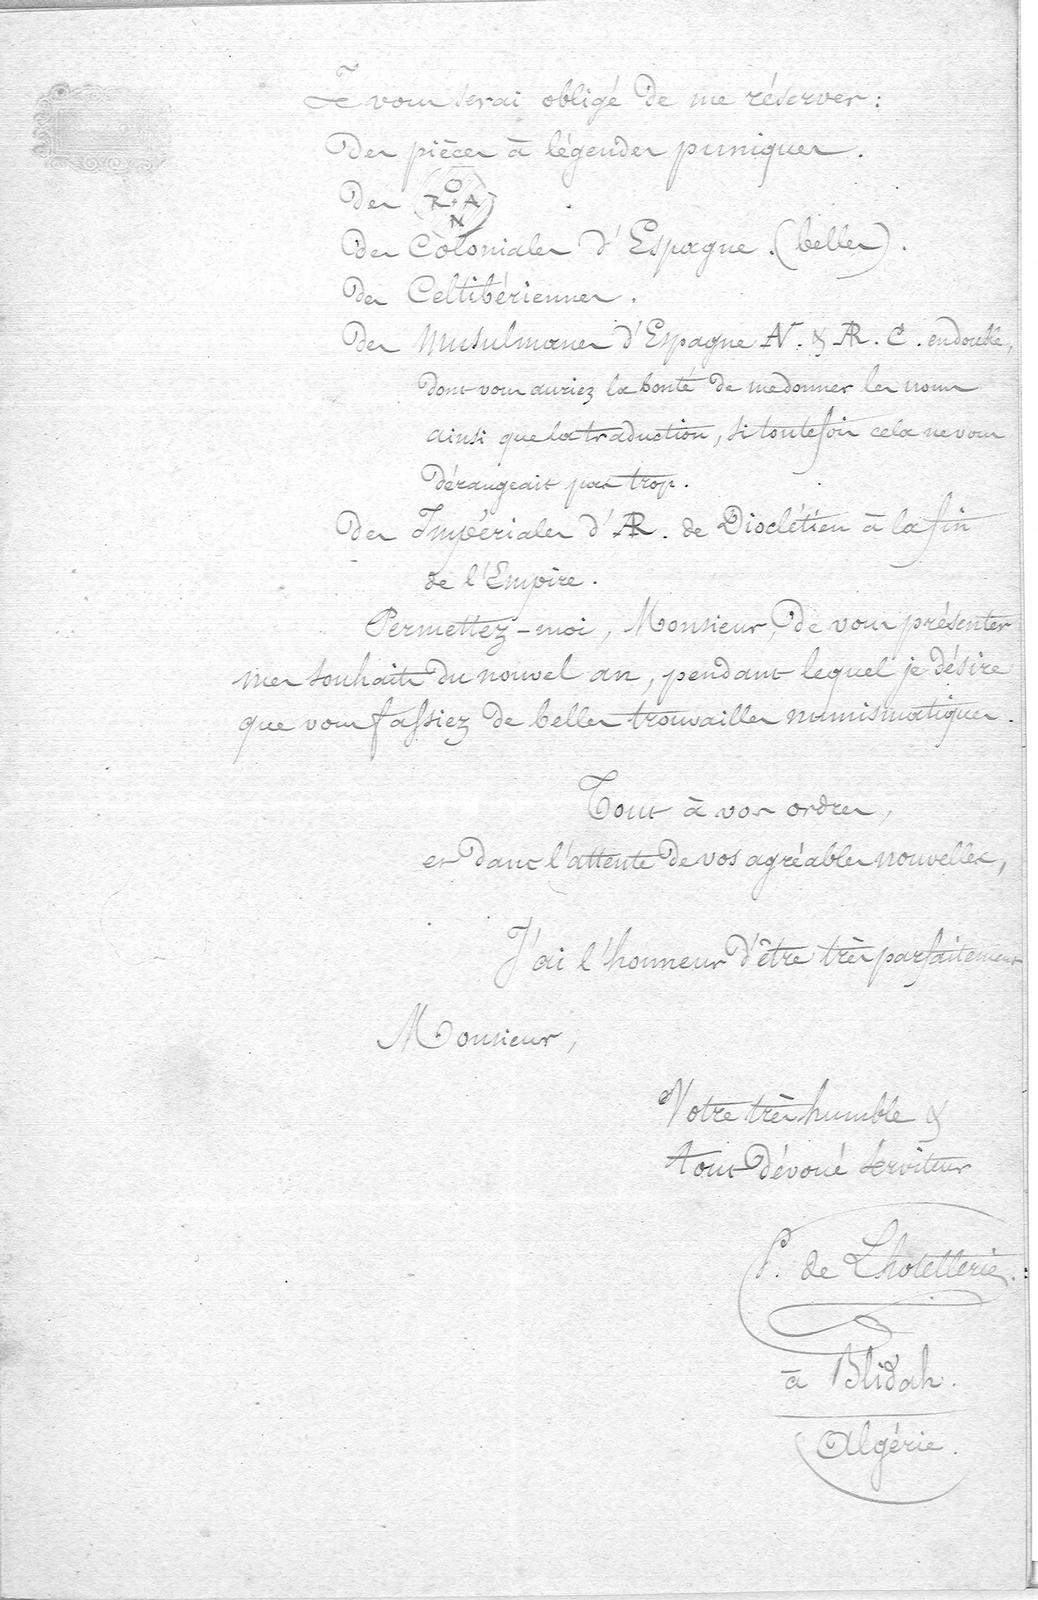 Je vous serai obligé de me réserver :
Des pièces à légendes puniques.
Des R O A N
Des Coloniales d'Espagne. (belles).
Des Celtibériennes.
Des Musulmanes d'Espagne AV. & AR. C. en double,
dont vous auriez la bonté de me donner les noms
ainsi que la traduction, si toutefois cela ne vous
dérangeait pas trop.
Des Impériales d'AR. de Dioclétien à la fin
de l'Empire.
Permettez-moi, Monsieur, de vous présenter
mes souhaits du nouvel an, pendant lequel je désire
que vous fassiez de belles trouvailles numismatiques.
Tout à vos ordres,
et dans l'attente de vos agréables nouvelles,
J'ai l'honneur d'être très parfaitement
Monsieur,
Votre très humble &
tout dévoué serviteur
P. de Lhotellerie.
à Blidah.
Algérie.